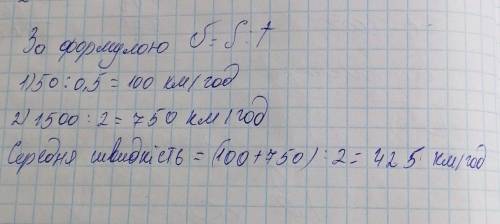 За формулою υ = S : t
1) 50 : 0,5 = 100 км/год
2) 1500 : 2 = 750 км/год
Середня швидкість = (100+750) : 2 = 425 км/год